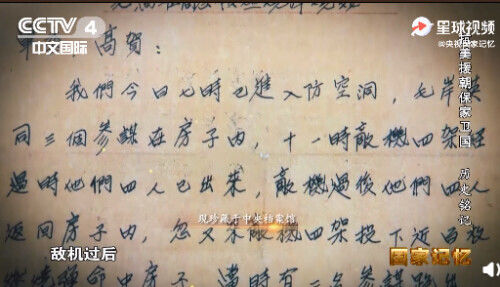 CCTV 4
中文国际
星球视频
@央视国家记忆
抗美援朝保家卫国 历史铭记
高賀：
我們今日七時已進入防空洞，毛岸英
同三個參謀在房子內，十一時敵機四架經
過時他們四人已出來，敵機過後他們四人
现珍藏于中央档案馆
返回房子內，忽又來敵機四架投下近百枚
燃燒彈命中房子，當時有二名參謀跑出
敌机过后
国家记忆